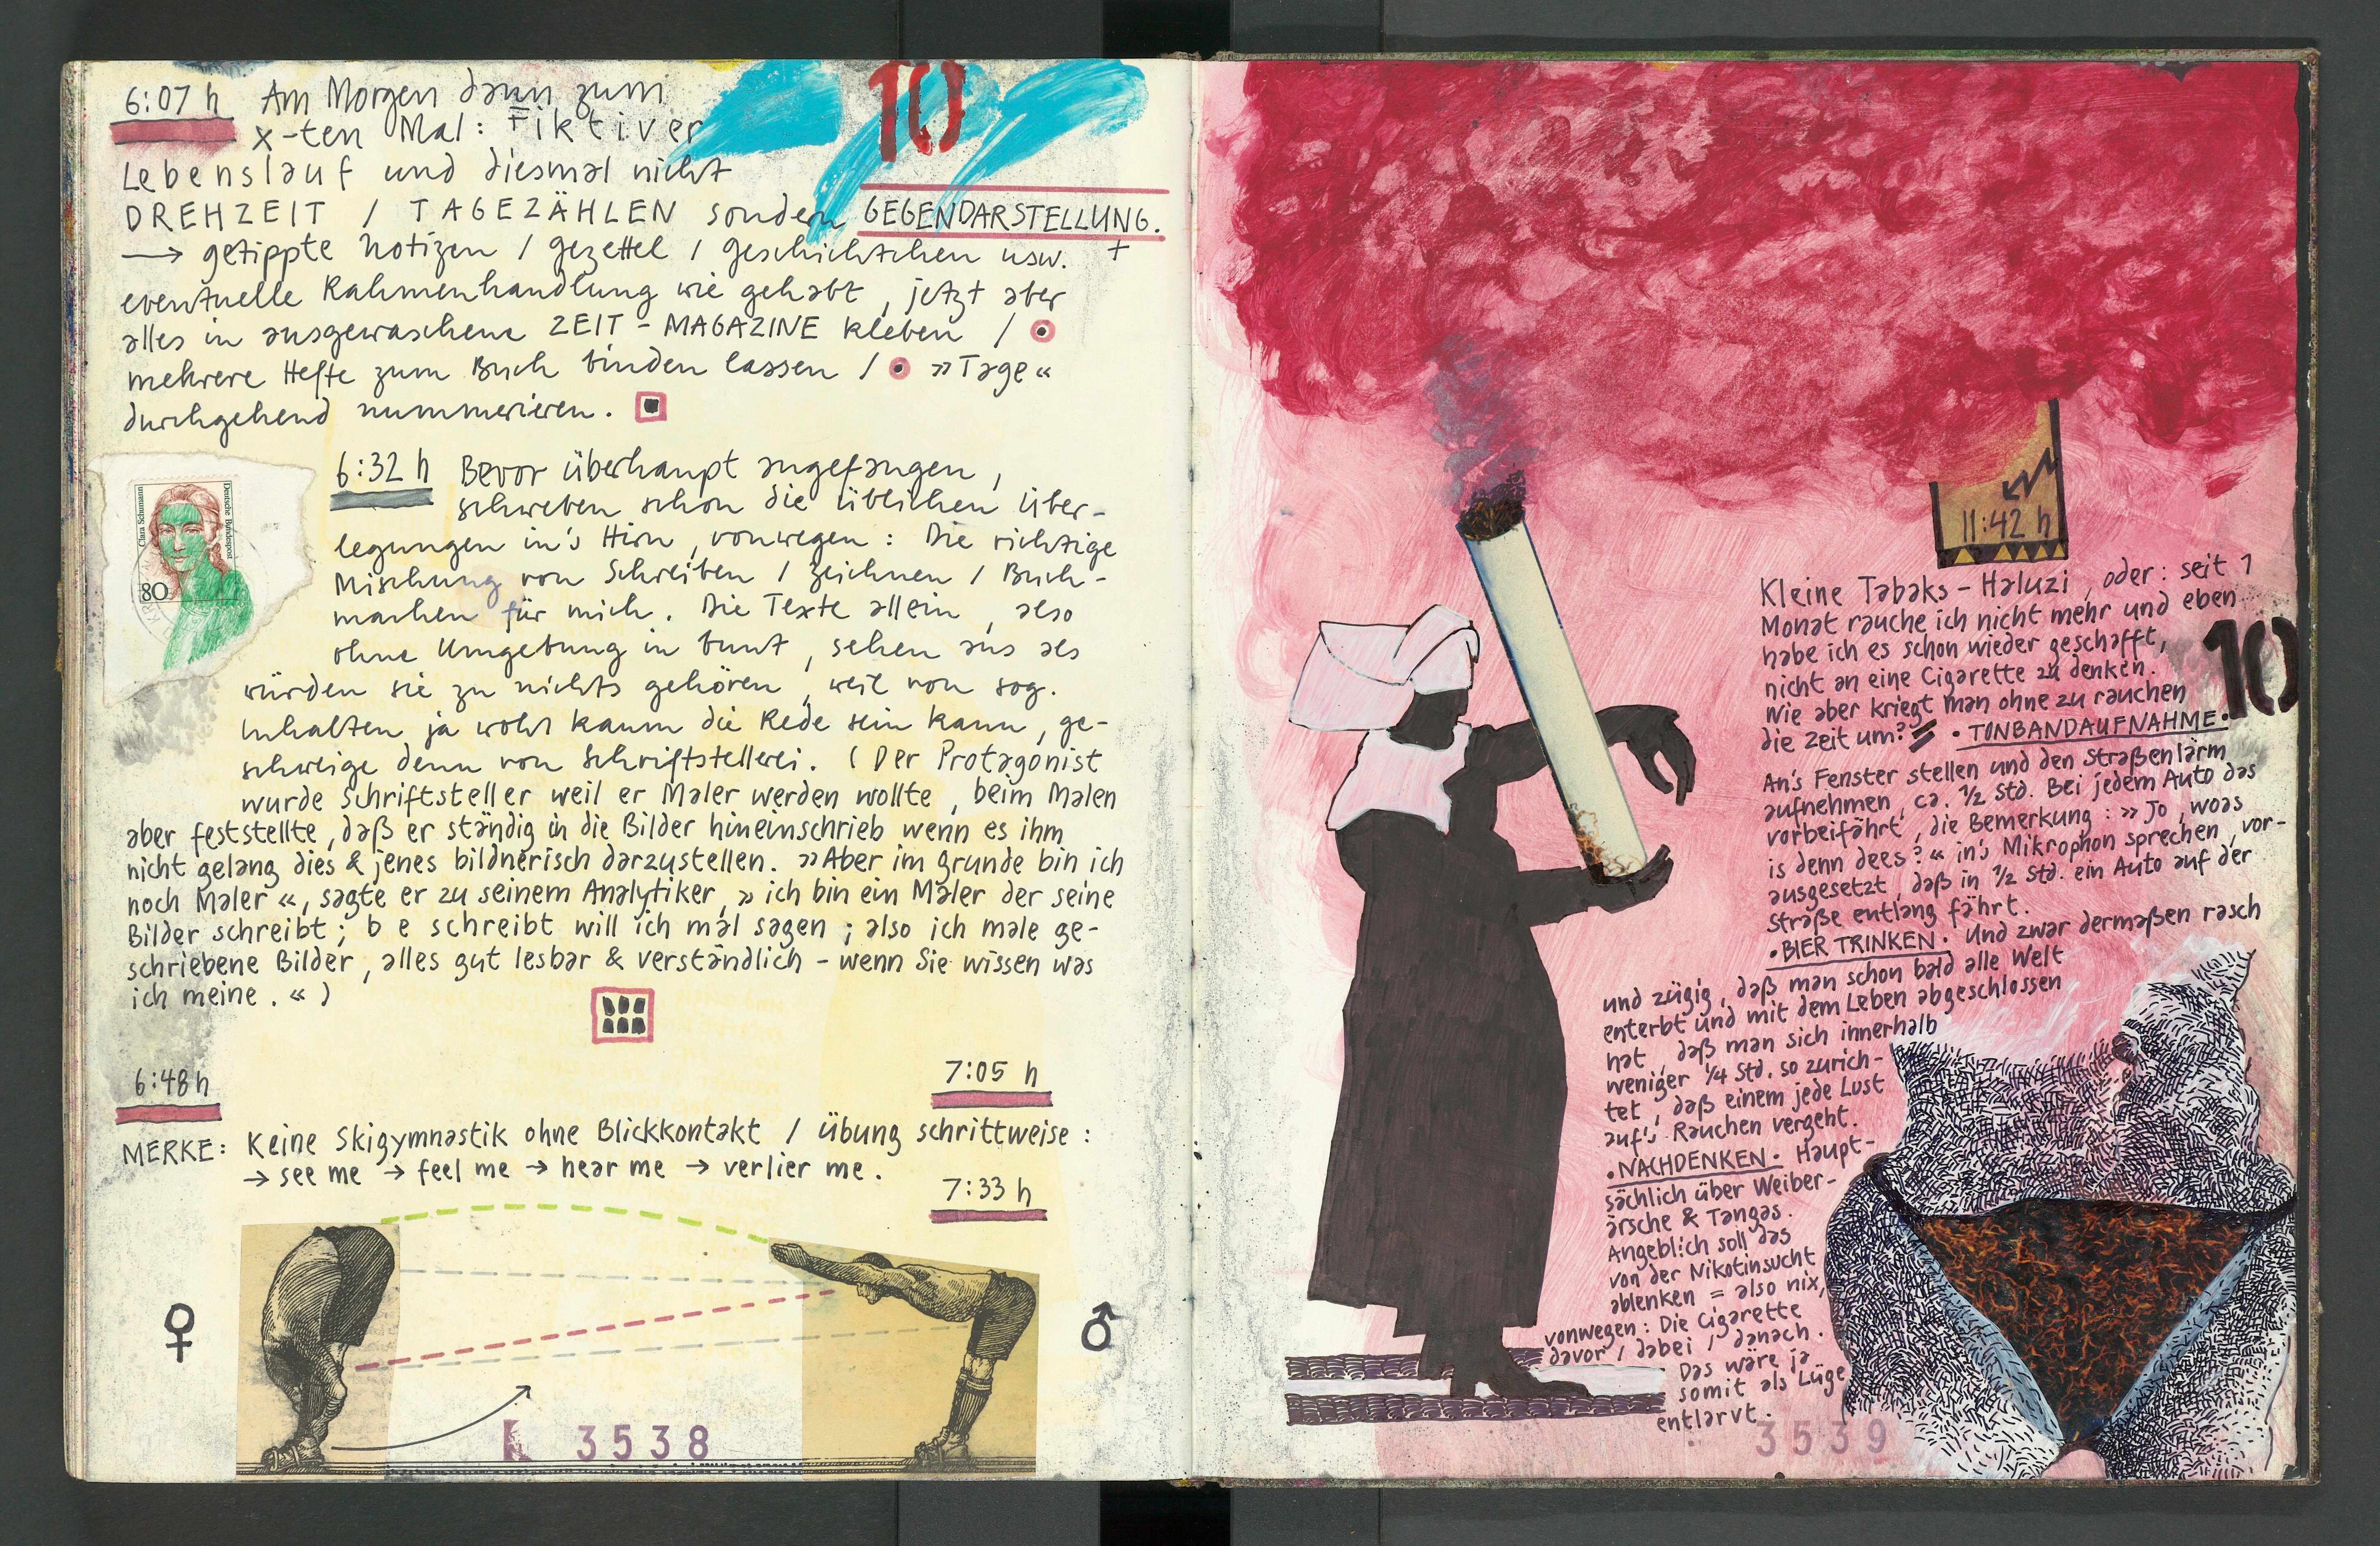 6:07 h Am Morgen dann zum
x-ten Mal: Fiktiver
Lebenslauf und diesmal nicht
DREHZEIT / TAGEZÄHLEN sondern GEGENDARSTELLUNG.
→ getippte Notizen / gezettel / geschichtchen usw. +
eventuelle Rahmenhandlung wie gehabt, jetzt aber
alles in ausgewaschene ZEIT-MAGAZINE kleben /
mehrere Hefte zum Buch binden lassen / »Tage«
durchgehend nummerieren.
10
6:32 h Bevor überhaupt angefangen,
schweben schon die üblichen Über-
legungen in's Hirn, vonwegen: Die richtige
Mischung von Schreiben / Zeichnen / Buch-
machen für mich. Die Texte allein, also
ohne Umgebung in bunt, sehen aus als
würden sie zu nichts gehören, weil von sog.
Inhalten ja wohl kaum die Rede sein kann, ge-
schweige denn von Schriftstellerei. (Der Protagonist
wurde Schriftsteller weil er Maler werden wollte, beim Malen
aber feststellte, daß er ständig in die Bilder hineinschrieb wenn es ihm
nicht gelang dies & jenes bildnerisch darzustellen. »Aber im Grunde bin ich
noch Maler«, sagte er zu seinem Analytiker, »ich bin ein Maler der seine
Bilder schreibt; b e schreibt will ich mal sagen; also ich male ge-
schriebene Bilder, alles gut lesbar & verständlich – wenn Sie wissen was
ich meine.«)
Clara Schumann
Deutsche Bundespost
80
6:48 h
7:05 h
MERKE: Keine Skigymnastik ohne Blickkontakt / Übung schrittweise:
→ see me → feel me → hear me → verlier me.
7:33 h
♀
♂
3538
11:42 h
Kleine Tabaks-Haluzi, oder: seit 1
Monat rauche ich nicht mehr und eben
habe ich es schon wieder geschafft,
nicht an eine Cigarette zu denken.
Wie aber kriegt man ohne zu rauchen
die Zeit um? • TONBANDAUFNAHME •
10
An's Fenster stellen und den Straßenlärm
aufnehmen, ca. 1/2 Std. Bei jedem Auto das
vorbeifährt, die Bemerkung: »Jo, woas
is denn dees?« in's Mikrophon sprechen, vor-
ausgesetzt, daß in 1/2 Std. ein Auto auf der
Straße entlang fährt.
• BIER TRINKEN • Und zwar dermaßen rasch
und zügig, daß man schon bald alle Welt
enterbt und mit dem Leben abgeschlossen
hat, daß man sich innerhalb
weniger 1/4 Std. so zurich-
tet, daß einem jede Lust
auf's Rauchen vergeht.
• NACHDENKEN • Haupt-
sächlich über Weiber-
ärsche & Tangas.
Angeblich soll das
von der Nikotinsucht
ablenken = also nix,
vonwegen: Die Cigarette
davor / dabei / danach.
Das wäre ja
somit als Lüge
entlarvt.
3539